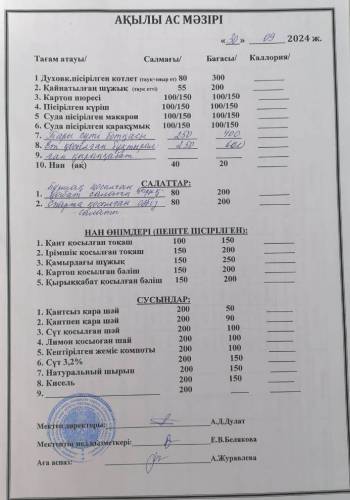 АҚЫЛЫ АС МӘЗІРІ
«30» 09 2024 ж.
Тағам атауы/ Салмағы/ Бағасы/ Каллория/
1 Духовк.пісірілген котлет (тауық+сиыр ет) 80 300
2. Қайнатылған шұжық (тауық еті) 55 200
3. Картоп пюресі 100/150 100/150
4. Пісірілген күріш 100/150 100/150
5 Суда пісірілген макарон 100/150 100/150
6. Суда пісірілген қарақұмық 100/150 100/150
7. Тары сүті ботқасы 250 400
8. Ет қосылған 250 600
9.
10. Нан (ақ) 40 20
САЛАТТАР:
1. 80 200
2. қосылған салат 80 200
НАН ӨНІМДЕРІ (ПЕШТЕ ПІСІРІЛГЕН):
1. Қант қосылған тоқаш 100 150
2. Ірімшік қосылған тоқаш 150 200
3. Қамырдағы шұжық 150 250
4. Картоп қосылған бәліш 150 200
5. Қырыққабат қосылған бәліш 150 200
СУСЫНДАР:
1. Қантсыз қара шай 200 50
2. Қантпен қара шай 200 90
3. Сүт қосылған шай 200 100
4. Лимон қосыоған шай 200 100
5. Кептірілген жеміс компоты 200 100
6. Сүт 3,2% 200 150
7. Натуральный шырын 200 150
8. Кисель 200 150
9. 200
Мектеп директоры: А.Д.Дулат
Мектептің мед қызметкері: Е.В.Белякова
Аға аспаз: А.Журавлева